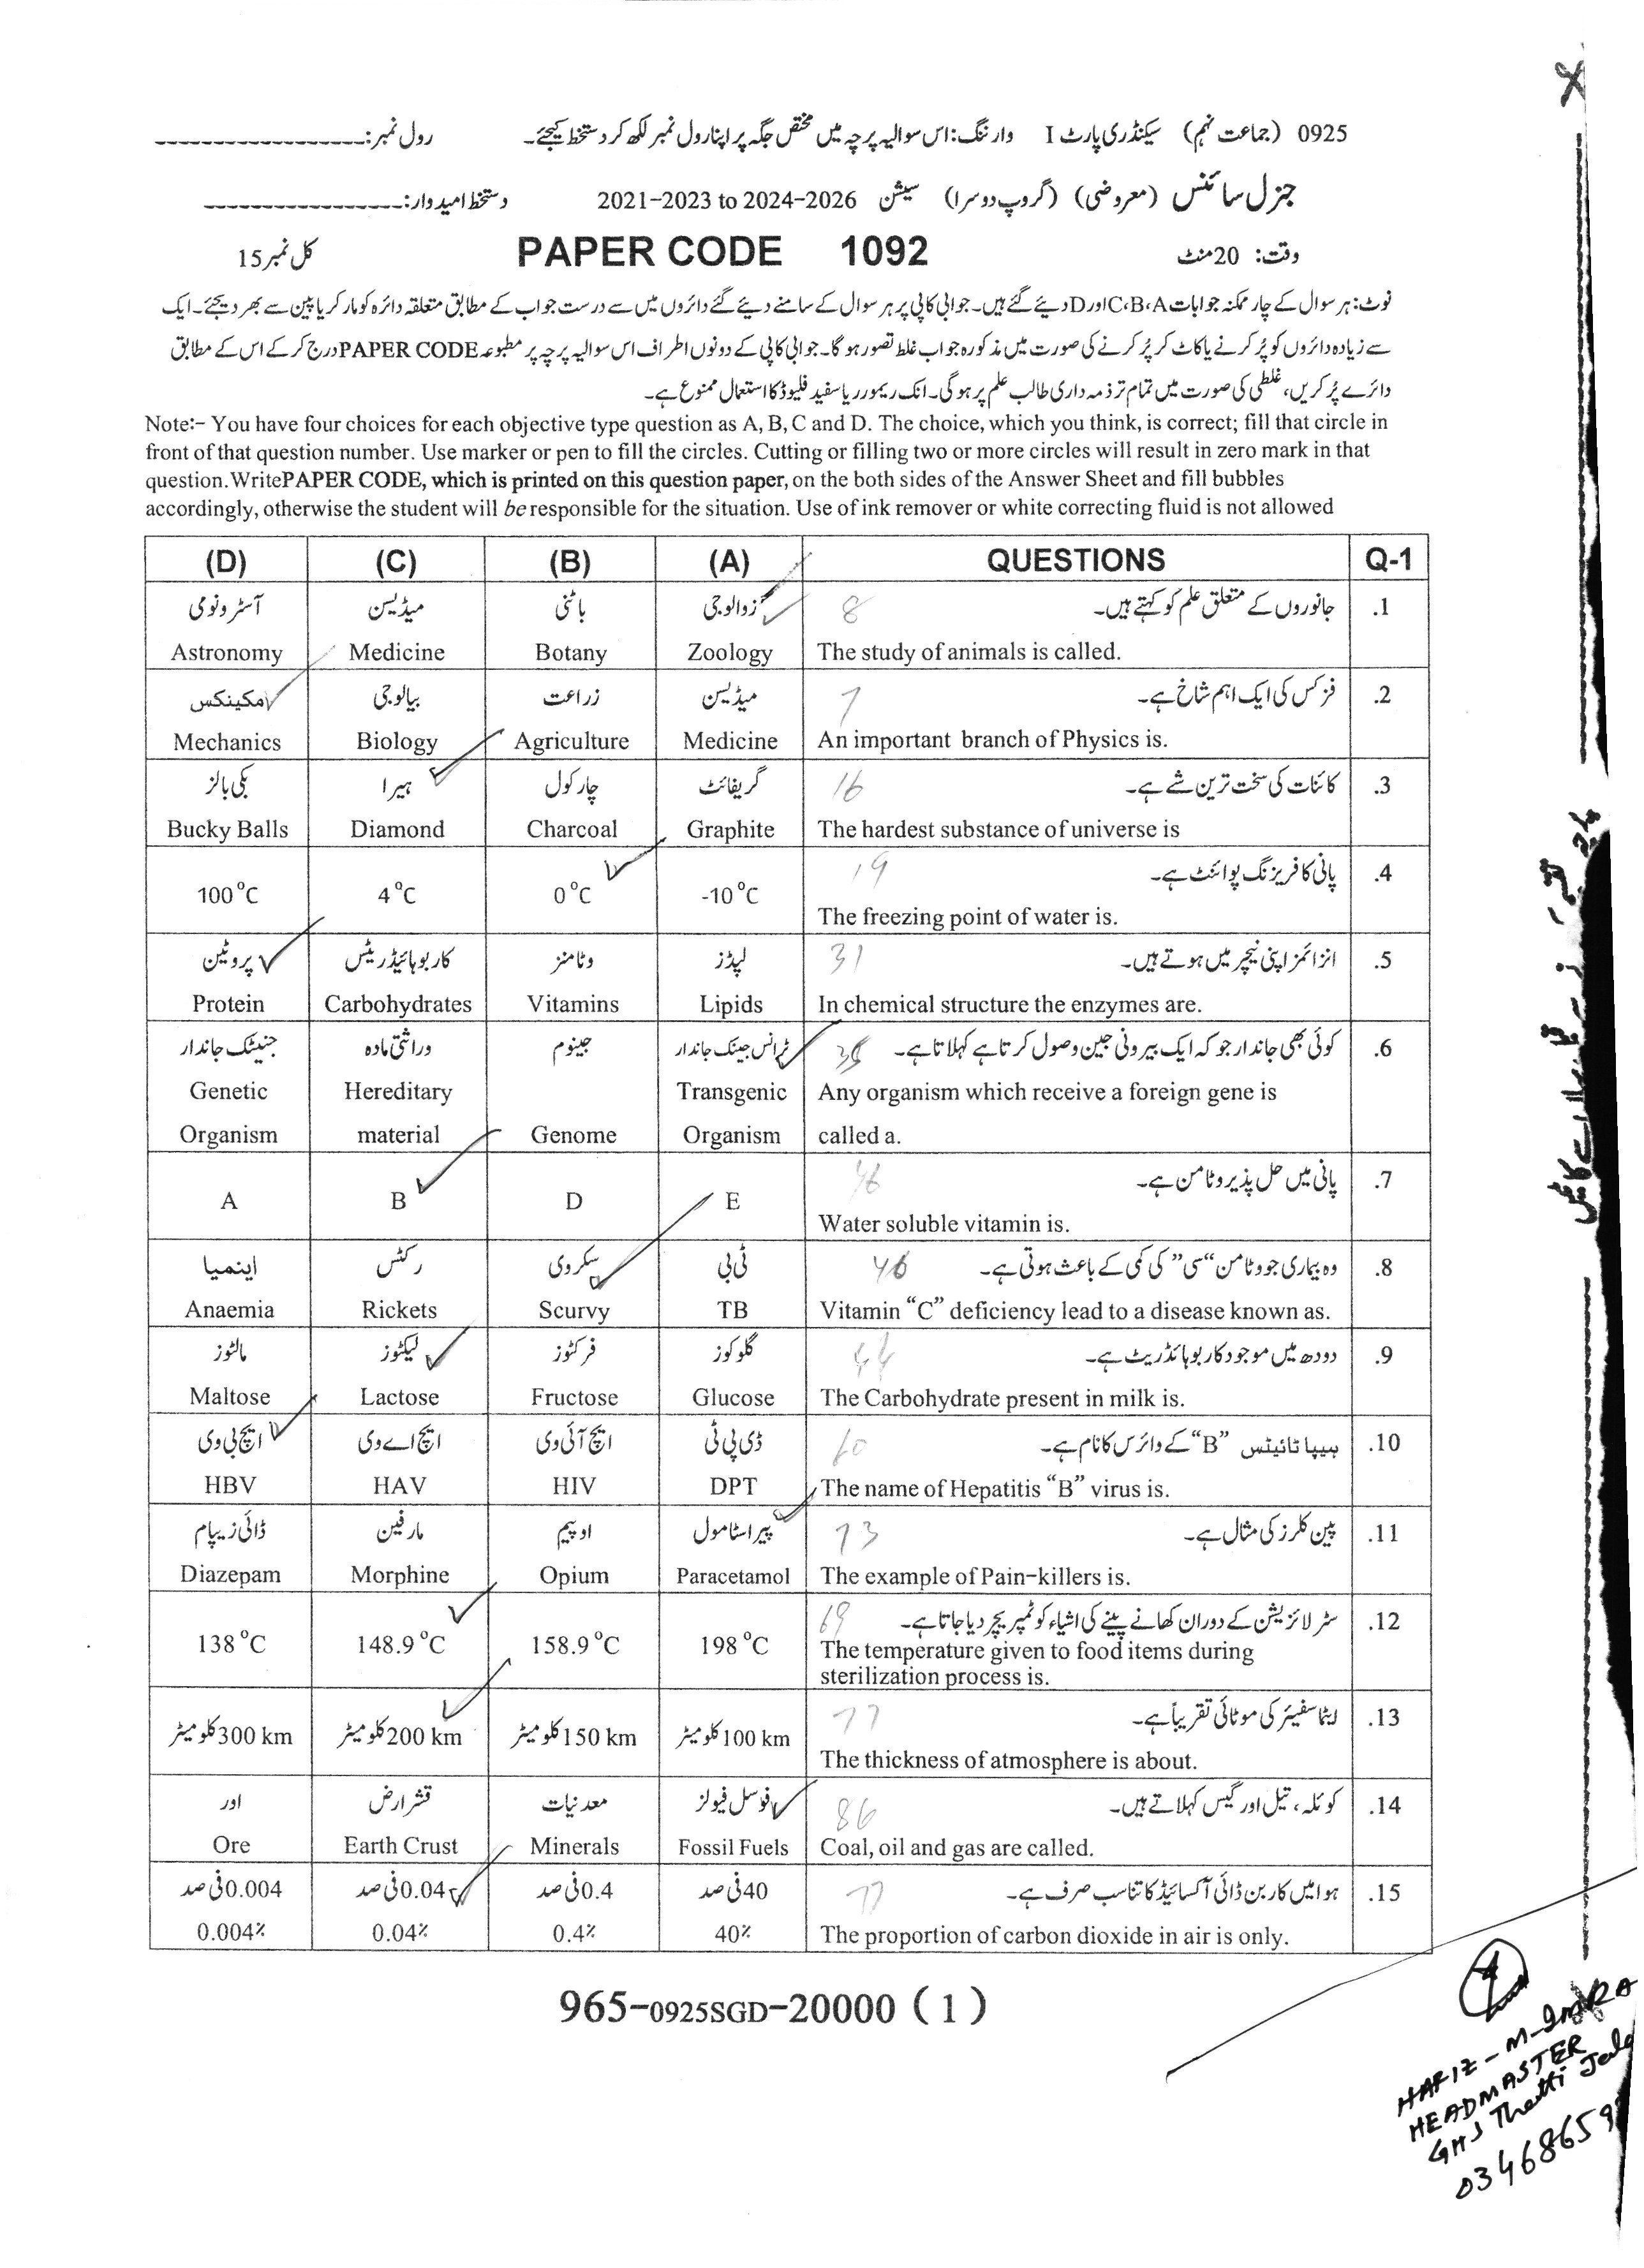 0925 (جماعت نہم) سیکنڈری پارٹ I وارننگ: اس سوالیہ پرچہ میں مختص جگہ پر اپنا رول نمبر لکھ کر دستخط کیجئے۔ رول نمبر:
جنرل سائنس (معروضی) (گروپ دوسرا) سیشن 2021-2023 to 2024-2026 دستخط امیدوار:
وقت: 20 منٹ PAPER CODE 1092 کل نمبر 15
نوٹ: ہر سوال کے چار ممکنہ جوابات C،B،A اور D دیئے گئے ہیں۔ جوابی کاپی پر ہر سوال کے سامنے دیئے گئے دائروں میں سے درست جواب کے مطابق متعلقہ دائرہ کو مارکر یا پین سے بھر دیجئے۔ ایک
سے زیادہ دائروں کو پُر کرنے یا کاٹ کر پُر کرنے کی صورت میں مذکورہ جواب غلط تصور ہو گا۔ جوابی کاپی کے دونوں اطراف اس سوالیہ پرچہ پر مطبوعہ PAPER CODE درج کر کے اس کے مطابق
دائرے پُر کریں، غلطی کی صورت میں تمام تر ذمہ داری طالب علم پر ہو گی۔ انک ریمورر یا سفید فلیوڈ کا استعمال ممنوع ہے۔
Note:- You have four choices for each objective type question as A, B, C and D. The choice, which you think, is correct; fill that circle in
front of that question number. Use marker or pen to fill the circles. Cutting or filling two or more circles will result in zero mark in that
question.WritePAPER CODE, which is printed on this question paper, on the both sides of the Answer Sheet and fill bubbles
accordingly, otherwise the student will be responsible for the situation. Use of ink remover or white correcting fluid is not allowed
(D) (C) (B) (A) QUESTIONS Q-1
آسٹرونومی میڈیسن باٹنی زوالوجی 8 جانوروں کے متعلق علم کو کہتے ہیں۔ .1
Astronomy Medicine Botany Zoology The study of animals is called.
مکینکس بیالوجی زراعت میڈیسن 7 فزکس کی ایک اہم شاخ ہے۔ .2
Mechanics Biology Agriculture Medicine An important branch of Physics is.
بکی بالز ہیرا چارکول گریفائٹ 16 کائنات کی سخت ترین شے ہے۔ .3
Bucky Balls Diamond Charcoal Graphite The hardest substance of universe is
19 پانی کا فریزنگ پوائنٹ ہے۔ .4
100°C 4°C 0°C -10°C The freezing point of water is.
پروٹین کاربوہائیڈریٹس وٹامنز لپڈز 31 انزائمز اپنی نیچر میں ہوتے ہیں۔ .5
Protein Carbohydrates Vitamins Lipids In chemical structure the enzymes are.
جنیٹک جاندار وراثتی مادہ جینوم ٹرانس جینک جاندار کوئی بھی جاندار جو کہ ایک بیرونی جین وصول کرتا ہے کہلاتا ہے۔ .6
Genetic Hereditary Transgenic Any organism which receive a foreign gene is
Organism material Genome Organism called a.
46 پانی میں حل پذیر وٹامن ہے۔ .7
A B D E Water soluble vitamin is.
اینمیا رکٹس سکروی ٹی بی 46 وہ بیماری جو وٹامن “سی” کی کمی کے باعث ہوتی ہے۔ .8
Anaemia Rickets Scurvy TB Vitamin “C” deficiency lead to a disease known as.
مالٹوز لیکٹوز فرکٹوز گلوکوز 44 دودھ میں موجود کاربوہائڈریٹ ہے۔ .9
Maltose Lactose Fructose Glucose The Carbohydrate present in milk is.
ایچ بی وی ایچ اے وی ایچ آئی وی ڈی پی ٹی 60 ہیپا ٹائیٹس “B” کے وائرس کا نام ہے۔ .10
HBV HAV HIV DPT The name of Hepatitis “B” virus is.
ڈائی زیپام مارفین اوپیم پیراسٹامول 73 پین کلرز کی مثال ہے۔ .11
Diazepam Morphine Opium Paracetamol The example of Pain-killers is.
69 سٹرلائزیشن کے دوران کھانے پینے کی اشیاء کو ٹمپریچر دیا جاتا ہے۔ .12
138°C 148.9°C 158.9°C 198°C The temperature given to food items during
sterilization process is.
77 ایٹماسفیئر کی موٹائی تقریباً ہے۔ .13
300 km کلومیٹر 200 km کلومیٹر 150 km کلومیٹر 100 km کلومیٹر The thickness of atmosphere is about.
اور قشر ارض معدنیات فوسل فیولز 86 کوئلہ، تیل اور گیس کہلاتے ہیں۔ .14
Ore Earth Crust Minerals Fossil Fuels Coal, oil and gas are called.
0.004 فی صد 0.04 فی صد 0.4 فی صد 40 فی صد 77 ہوا میں کاربن ڈائی آکسائیڈ کا تناسب صرف ہے۔ .15
0.004% 0.04% 0.4% 40% The proportion of carbon dioxide in air is only.
965-0925SGD-20000 (1)
HAFIZ-M-IMRA
HEADMASTER
GHS Thatti Jal
03468659